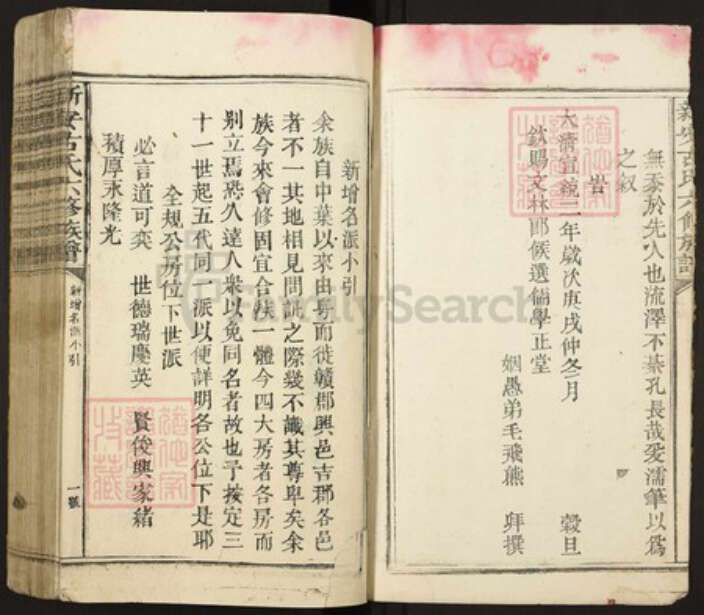 無忝於先人也流澤不綦孔長哉爰濡筆以為
之敘
旹
大清宣統二年歲次庚戌仲冬月 穀旦
欽賜文林郎候選儒學正堂
姻愚弟毛飛熊 拜撰
新安古氏六修族譜
新增名派小引
余族自中葉以來由粵而徙贛郡興邑吉郡各邑
者不一其地相見問訊之際幾不識其尊卑矣余
族今來會修固宜合族一體今四大房者各房而
別立焉恐久遠人眾以免同名者故也予按定三
十一世起五代同一派以便詳明各公位下是耶
全規公房位下世派
必言道可奕 世德瑞慶英 賢俊興家緒
積厚永隆光
新安古氏六修族譜
新增名派小引
一號
FamilySearch